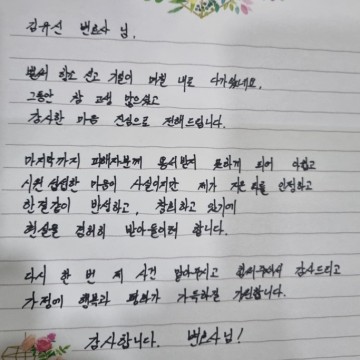 김유신 변호사 님.
벌써 항소 선고 기일이 며칠 내로 다가왔네요.
그동안 참 고생 많으셨고
감사한 마음 진심으로 전해드립니다.
마지막까지 피해자분께 용서받지 못하게 되어 아쉽고
시원 섭섭한 마음이 사실이지만 제가 지은 죄를 인정하고
한결같이 반성하고, 참회하고 있기에
현실을 겸허히 받아들이려 합니다.
다시 한 번 제 사건 맡아주시고 감사드리고
가정에 행복과 평화가 가득하길 기원합니다.
감사합니다. 변호사님!